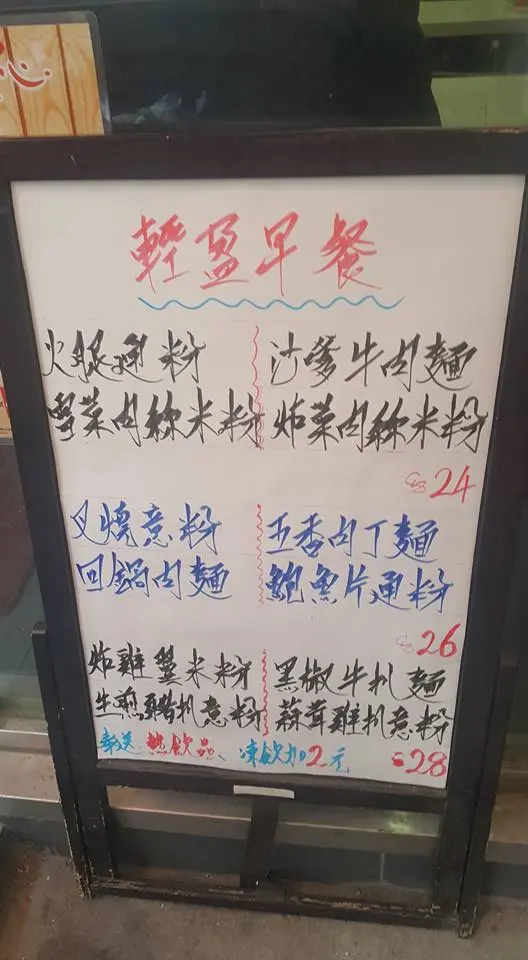 心
輕盈早餐
火腿通粉 沙爹牛肉麵
雪菜肉絲米粉 炸菜肉絲米粉
24
叉燒意粉 五香肉丁麵
回鍋肉麵 鮑魚片通粉
26
炸雞翼米粉 黑椒牛扒麵
生煎豬扒意粉 蒜茸雞扒意粉
奉送熱飲品、凍飲加2元 28